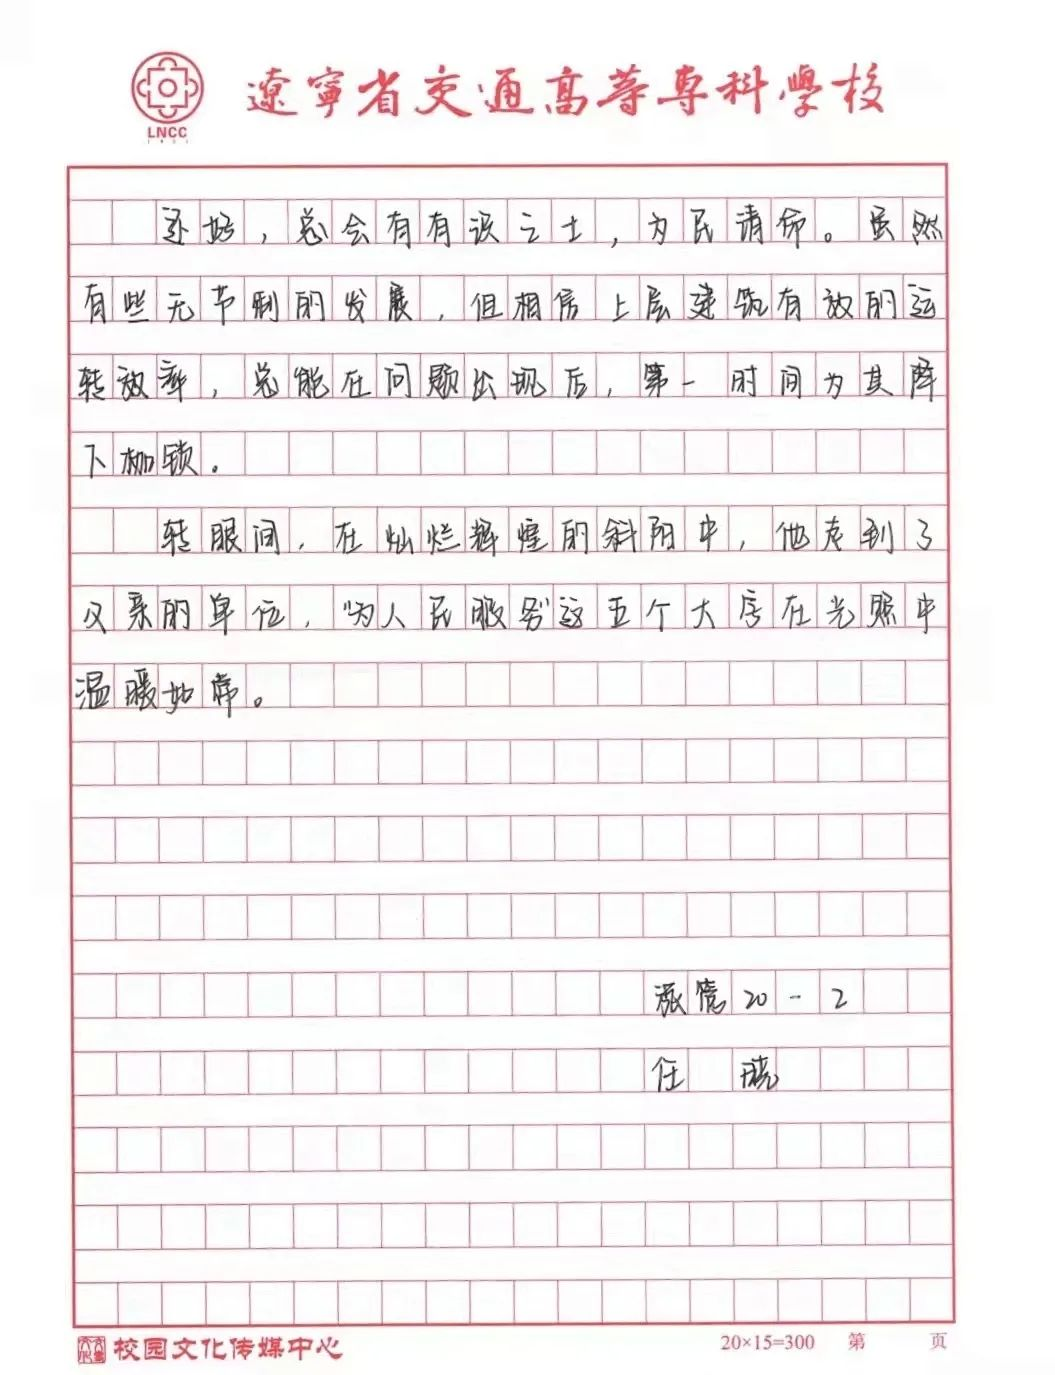 LNCC
遼寧省交通高等專科學校
还好，总会有有识之士，为民请命。虽然
有些无节制的发展，但相信上层建筑有效的运
转效率，总能在问题出现后，第一时间为其降
下枷锁。
转眼间，在灿烂辉煌的斜阳中，他走到了
父亲的单位，“为人民服务”这五个大字在光照中
温暖如常。
20-2
任 晓
校园文化传媒中心
20×15=300 第 页